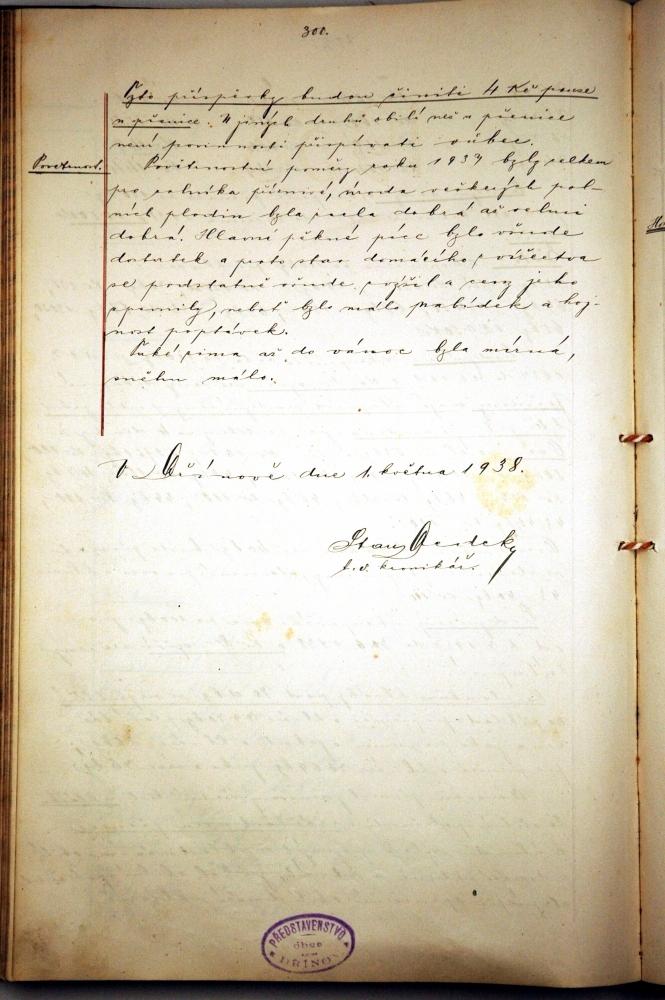 300.
Tyto příspěvky budou činiti 4 Kč pouze
u pšenice. U jiných druhů obilí než u pšenice
není povinnosti přispívati vůbec.
Povětrnost.
Povětrnostní poměry roku 1937 byly celkem
pro rolníka příznivé, úroda veškerých pol-
ních plodin byla zcela dobrá až velmi
dobrá. Hlavně pěkné píce bylo všude
dostatek a proto stav domácího zvířectva
se podstatně všude zvýšil a ceny jeho
zpevnily, neboť bylo málo nabídek a hoj-
nost poptávek.
Také zima až do vánoc byla mírná,
sněhu málo.
V Dřínově dne 1. května 1938.
Stan.
t.č. kronikář.
PŘEDSTAVENSTVO
obce
DŘÍNOV